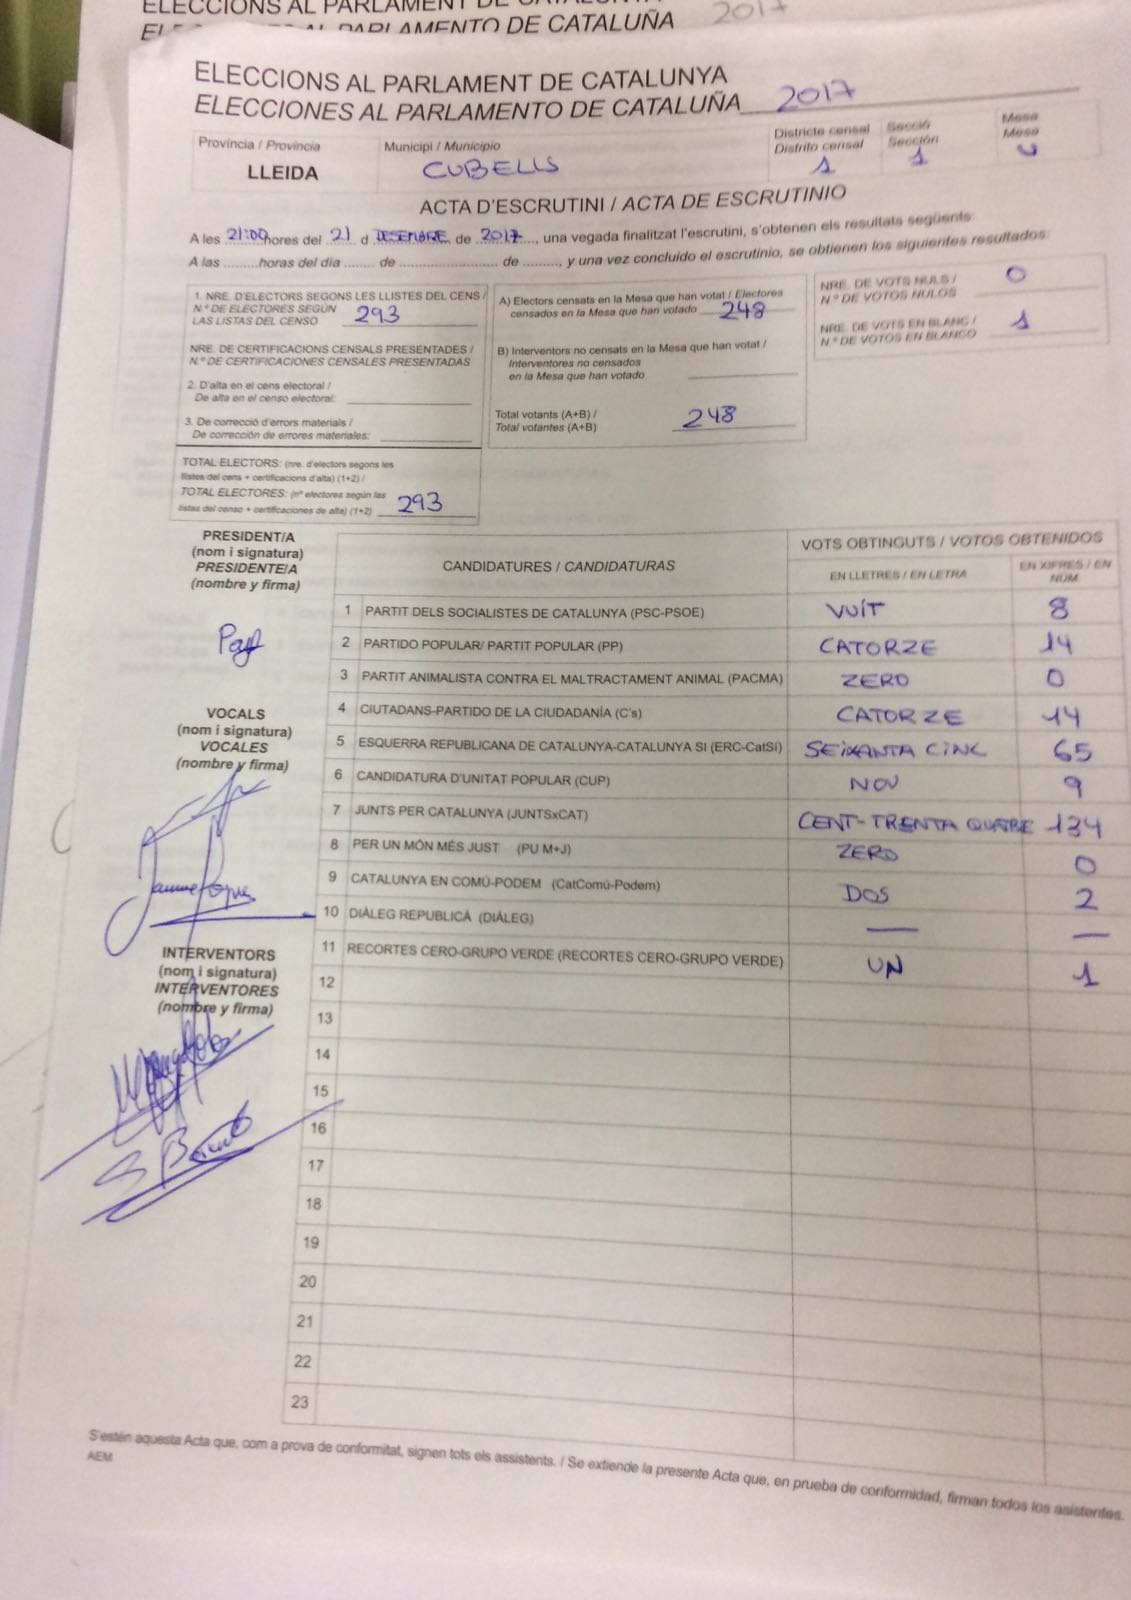 ELECCIONS AL PARLAMENT DE CATALUNYA
PARLAMENTO DE CATALUÑA 2017
ELECCIONS AL PARLAMENT DE CATALUNYA
ELECCIONES AL PARLAMENTO DE CATALUÑA 2017
Província / Provincia Municipi / Municipio Districte censal Secció Mesa
Distrito censal Sección Mesa
LLEIDA CUBELLS 1 1 U
ACTA D'ESCRUTINI / ACTA DE ESCRUTINIO
A les 21:00 hores del 21 d DESEMBRE de 2017, una vegada finalitzat l'escrutini, s'obtenen els resultats següents:
A las ......... horas del día ....... de ...................... de ........, y una vez concluido el escrutinio, se obtienen los siguientes resultados:
1. NRE. D'ELECTORS SEGONS LES LLISTES DEL CENS /
N.º DE ELECTORES SEGÚN
LAS LISTAS DEL CENSO 293
NRE. DE CERTIFICACIONS CENSALS PRESENTADES /
N.º DE CERTIFICACIONES CENSALES PRESENTADAS
2. D'alta en el cens electoral /
De alta en el censo electoral:
3. De correcció d'errors materials /
De corrección de errores materiales:
TOTAL ELECTORS: (nre. d'electors segons les
llistes del cens + certificacions d'alta) (1+2) /
TOTAL ELECTORES: (nº electores según las
listas del censo + certificaciones de alta) (1+2) 293
A) Electors censats en la Mesa que han votat / Electores
censados en la Mesa que han votado 248
B) Interventors no censats en la Mesa que han votat /
Interventores no censados
en la Mesa que han votado
Total votants (A+B) /
Total votantes (A+B) 248
NRE. DE VOTS NULS /
N.º DE VOTOS NULOS 0
NRE. DE VOTS EN BLANC /
N.º DE VOTOS EN BLANCO 1
PRESIDENT/A
(nom i signatura)
PRESIDENTE/A
(nombre y firma)
VOCALS
(nom i signatura)
VOCALES
(nombre y firma)
INTERVENTORS
(nom i signatura)
INTERVENTORES
(nombre y firma)
CANDIDATURES / CANDIDATURAS VOTS OBTINGUTS / VOTOS OBTENIDOS
EN LLETRES / EN LETRA EN XIFRES / EN NÚM
1 PARTIT DELS SOCIALISTES DE CATALUNYA (PSC-PSOE) VUÍT 8
2 PARTIDO POPULAR/ PARTIT POPULAR (PP) CATORZE 14
3 PARTIT ANIMALISTA CONTRA EL MALTRACTAMENT ANIMAL (PACMA) ZERO 0
4 CIUTADANS-PARTIDO DE LA CIUDADANÍA (C's) CATORZE 14
5 ESQUERRA REPUBLICANA DE CATALUNYA-CATALUNYA SI (ERC-CatSí) SEIXANTA CINC 65
6 CANDIDATURA D'UNITAT POPULAR (CUP) NOU 9
7 JUNTS PER CATALUNYA (JUNTSxCAT) CENT-TRENTA QUATRE 134
8 PER UN MÓN MÉS JUST (PU M+J) ZERO 0
9 CATALUNYA EN COMÚ-PODEM (CatComú-Podem) DOS 2
10 DIÀLEG REPUBLICÀ (DIÀLEG) — —
11 RECORTES CERO-GRUPO VERDE (RECORTES CERO-GRUPO VERDE) UN 1
12
13
14
15
16
17
18
19
20
21
22
23
S'estén aquesta Acta que, com a prova de conformitat, signen tots els assistents. / Se extiende la presente Acta que, en prueba de conformidad, firman todos los asistentes.
AEM